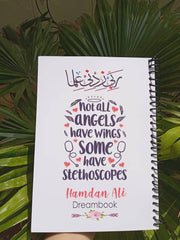 رب زدني علما
not all
angels
have wings
some
have
stethoscopes
Hamdan Ali
Dreambook